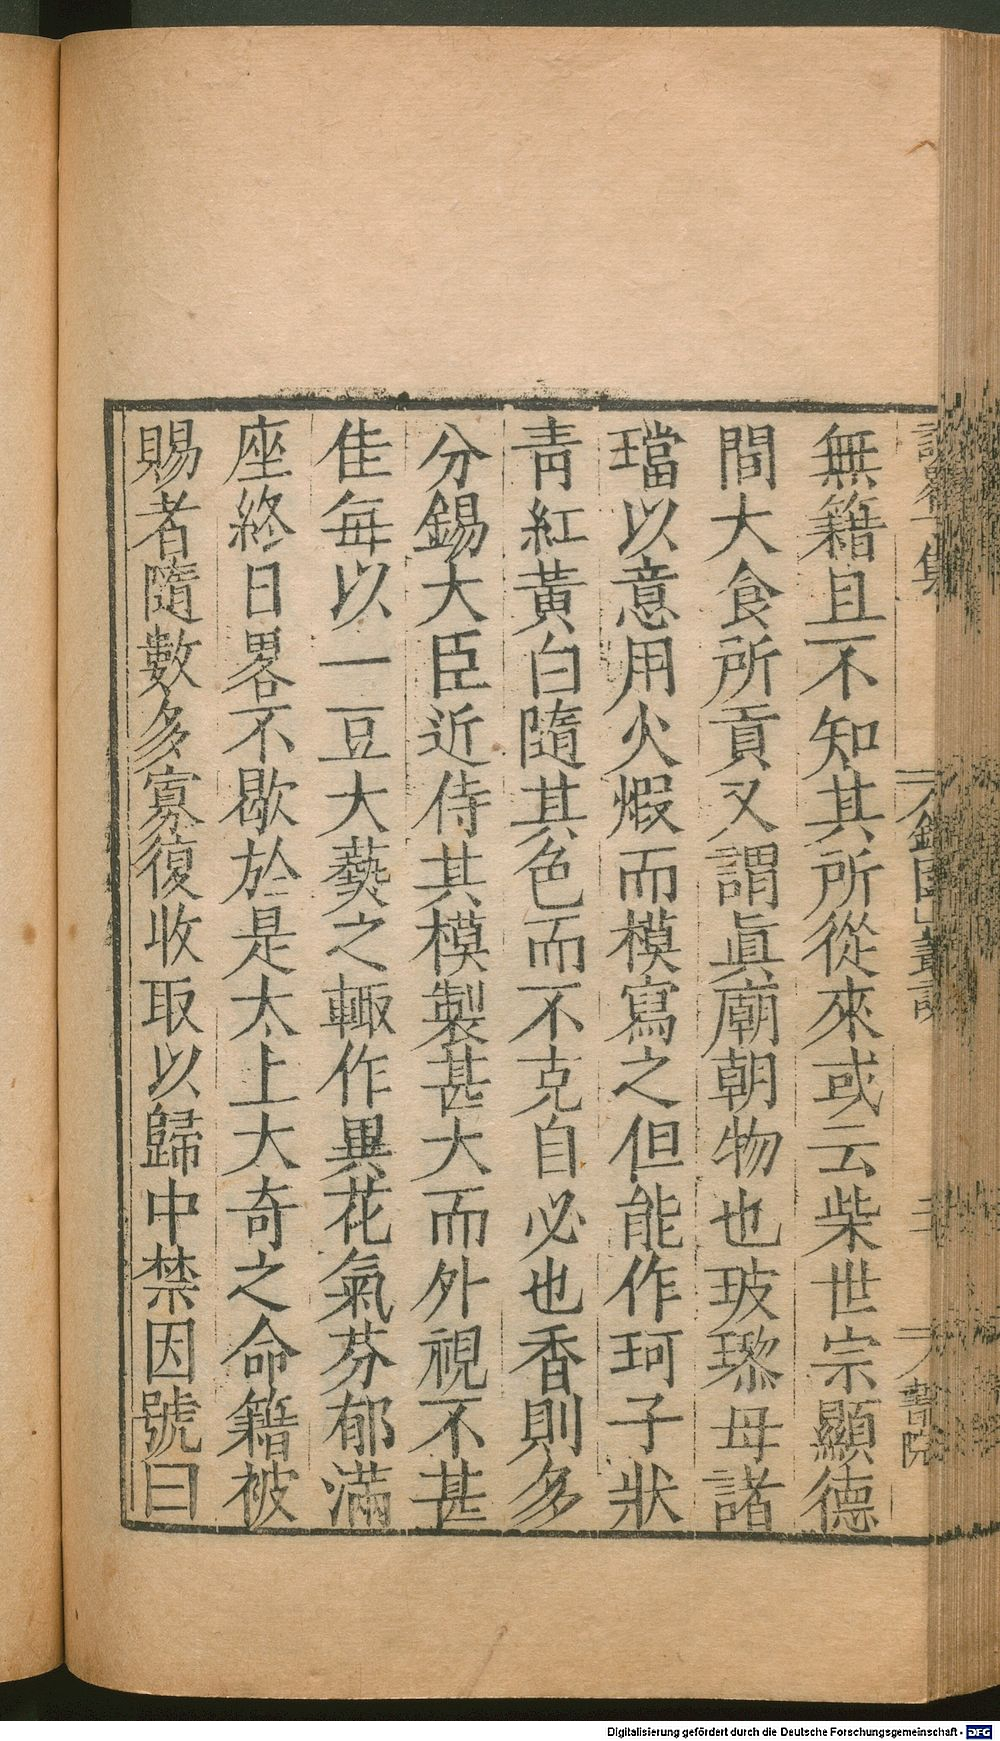 無籍且不知其所從來或云柴世宗顯德
間大食所貢又謂眞廟朝物也玻瓈母諸
璫以意用火煆而模寫之但能作珂子狀
青紅黃白隨其色而不克自必也香則多
分錫大臣近侍其模製甚大而外視不甚
佳每以一豆大爇之輙作異花氣芬郁滿
座終日畧不歇於是太上大奇之命籍被
賜者隨數多寡復收取以歸中禁因號曰
書院
Digitalisierung gefördert durch die Deutsche Forschungsgemeinschaft - DFG